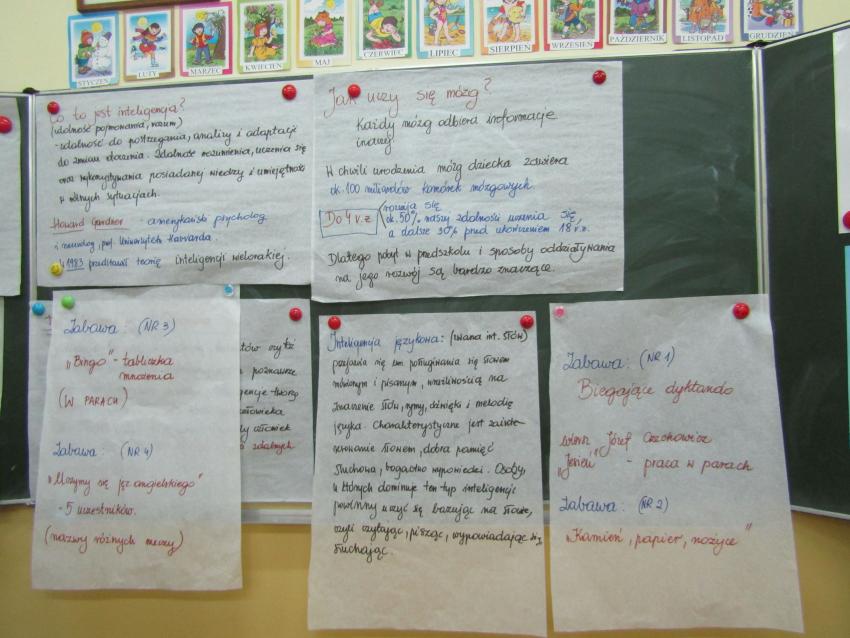 STYCZEŃ
LUTY
MARZEC
KWIECIEŃ
MAJ
CZERWIEC
LIPIEC
SIERPIEŃ
WRZESIEŃ
PAŹDZIERNIK
LISTOPAD
GRUDZIEŃ
Co to jest inteligencja?
(zdolność pojmowania, rozum)
- zdolność do postrzegania, analizy i adaptacji
do zmian otoczenia. Zdolność rozumienia, uczenia się
oraz wykorzystywania posiadanej wiedzy i umiejętności
w różnych sytuacjach.
Howard Gardner - amerykański psycholog
i neurolog, prof. Uniwersytetu Harvarda.
W 1983 przedstawił teorię inteligencji wielorakiej.
Jak uczy się mózg?
Każdy mózg odbiera informacje
inaczej!
W chwili urodzenia mózg dziecka zawiera
ok. 100 miliardów komórek mózgowych.
Do 4 r.ż
rozwija się
ok. 50% naszej zdolności uczenia się,
a dalsze 30% przed ukończeniem 18 r.ż.
Dlatego pobyt w przedszkolu i sposoby oddziaływania
na jego rozwój są bardzo znaczące.
Zabawa: (NR 3)
"Bingo" - tabliczka
mnożenia
(W PARACH)
Zabawa: (NR 4)
"Uczymy się jęz. angielskiego"
- 5 uczestników.
(nazwy różnych rzeczy)
człowieka
zdolnych
Inteligencja językowa: (zwana int. słów)
przejawia się um. posługiwania się słowem
mówionym i pisanym, wrażliwością na
znaczenie słów, rymy, dźwięki i melodię
języka. Charakterystyczne jest zainte-
resowanie słowem, dobra pamięć
słuchowa, bogactwo wypowiedzi. Osoby,
u których dominuje ten typ inteligencji
powinny uczyć się bazując na słowie,
czyli czytając, pisząc, wypowiadając się,
słuchając.
Zabawa: (NR 1)
Biegające dyktando
wiersz Józef Czechowicz
"Jesień" - praca w parach
Zabawa: (NR 2)
"Kamień, papier, nożyce"